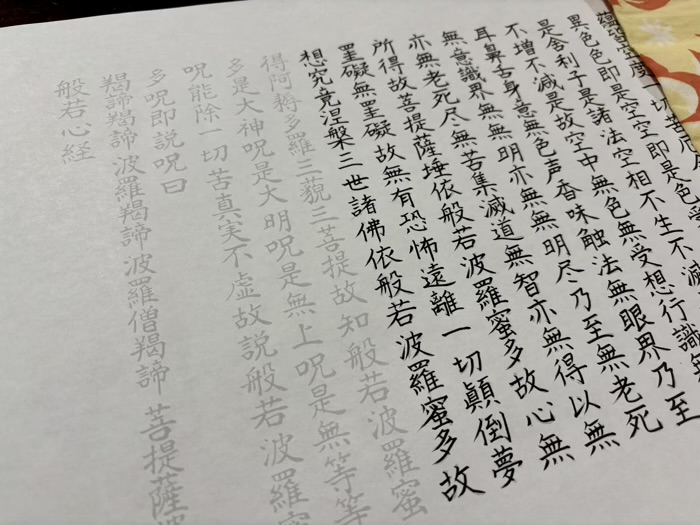 蘊皆空度一切苦厄
異色色即是空空即是色受
是舎利子是諸法空相不生不滅
不増不減是故空中無色無受想行識無
耳鼻舌身意無色声香味触法無眼界乃至
無意識界無無明亦無無明尽乃至無老死
亦無老死尽無苦集滅道無智亦無得以無
所得故菩提薩埵依般若波羅蜜多故心無
罣礙無罣礙故無有恐怖遠離一切顛倒夢
想究竟涅槃三世諸佛依般若波羅蜜多故
得阿耨多羅三藐三菩提故知般若波羅蜜
多是大神呪是大明呪是無上呪是無等等
呪能除一切苦真実不虚故説般若波羅蜜
多呪即説呪曰
羯諦羯諦波羅羯諦波羅僧羯諦菩提薩婆
般若心経